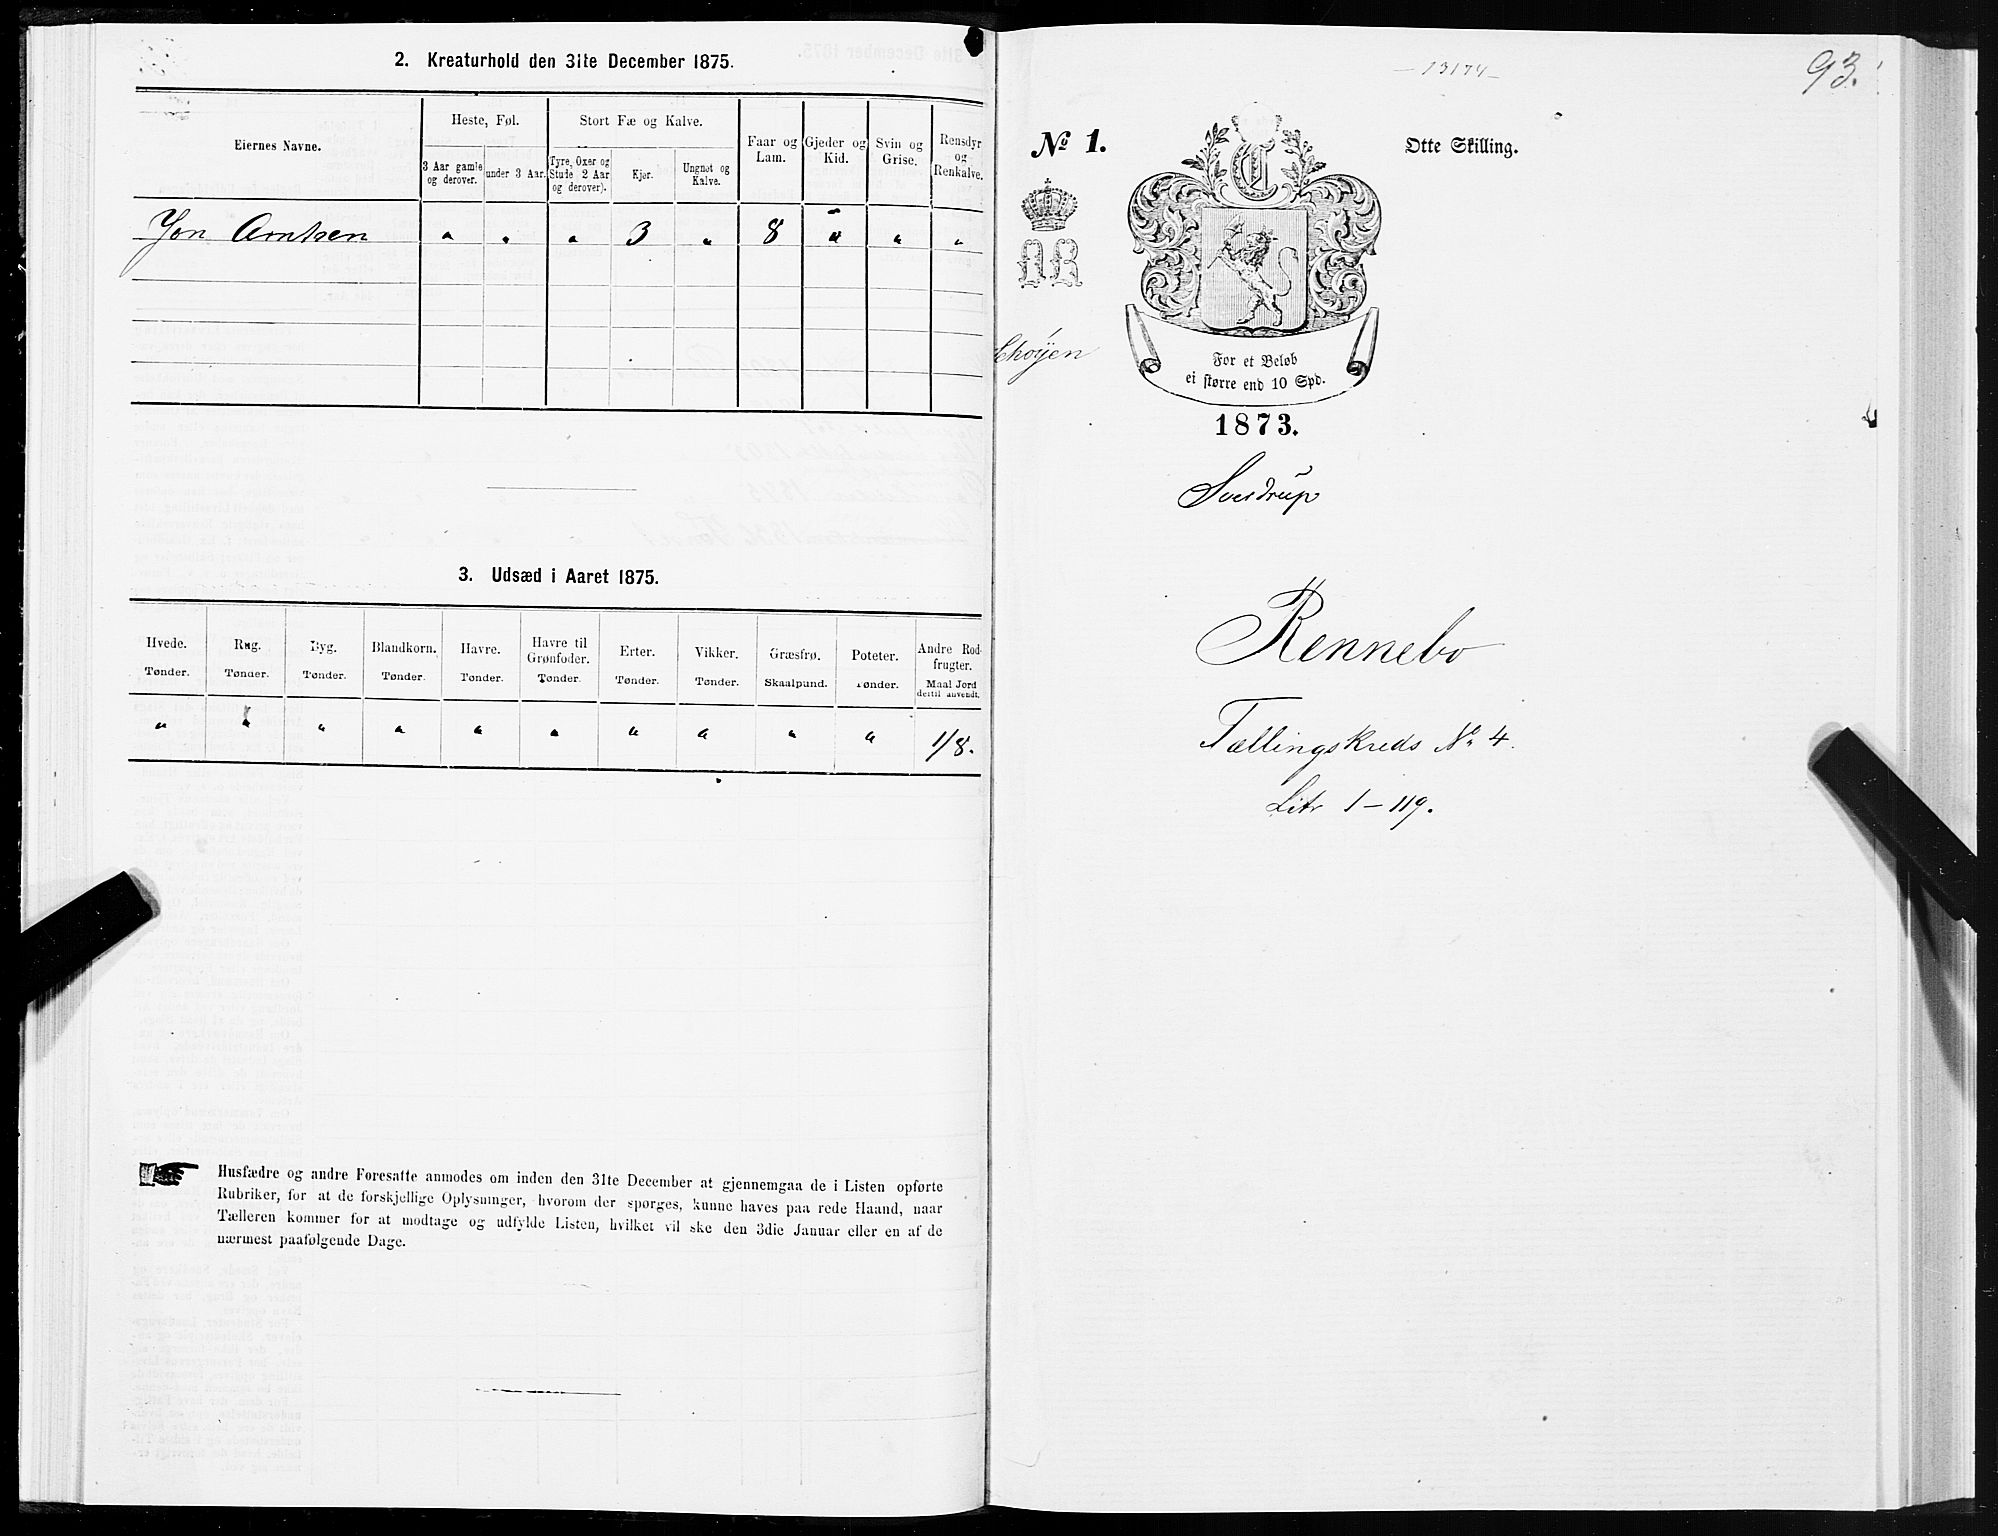 2. Kreaturhold den 31te December 1875.
Eiernes Navne.
Heste, Føl.
3 Aar gamle og derover.
under 3 Aar.
Stort Fæ og Kalve.
Tyre, Oxer og Stude 2 Aar og derover).
Kjør.
Ungnøt og Kalve.
Faar og Lam.
Gjeder og Kid.
Svin og Grise.
Rensdyr og Renkalve.
Jon Arntsen " " " 3 " 8 " " "
3. Udsæd i Aaret 1875.
Hvede. Rug. Byg. Blandkorn. Havre. Havre til Grønfoder. Erter. Vikker. Græsfrø. Poteter. Andre Rodfrugter.
Tønder. Tønder. Tønder. Tønder. Tønder. Tønder. Tønder. Tønder. Skaalpund. Tønder. Maal Jord dertil anvendt.
" " " " " " " " " " 1/8.
Husfædre og andre Foresatte anmodes om inden den 31te December at gjennemgaa de i Listen opførte
Rubriker, for at de forskjellige Oplysninger, hvorom der spørges, kunne haves paa rede Haand, naar
Tælleren kommer for at modtage og udfylde Listen, hvilket vil ske den 3die Januar eller en af de
nærmest paafølgende Dage.
93.
- 13174 -
No 1.
Otte Skilling.
For et Beløb
ei større end 10 Spd.
1873.
Rennebo
Tællingskreds No 4.
Litr 1 - 119.